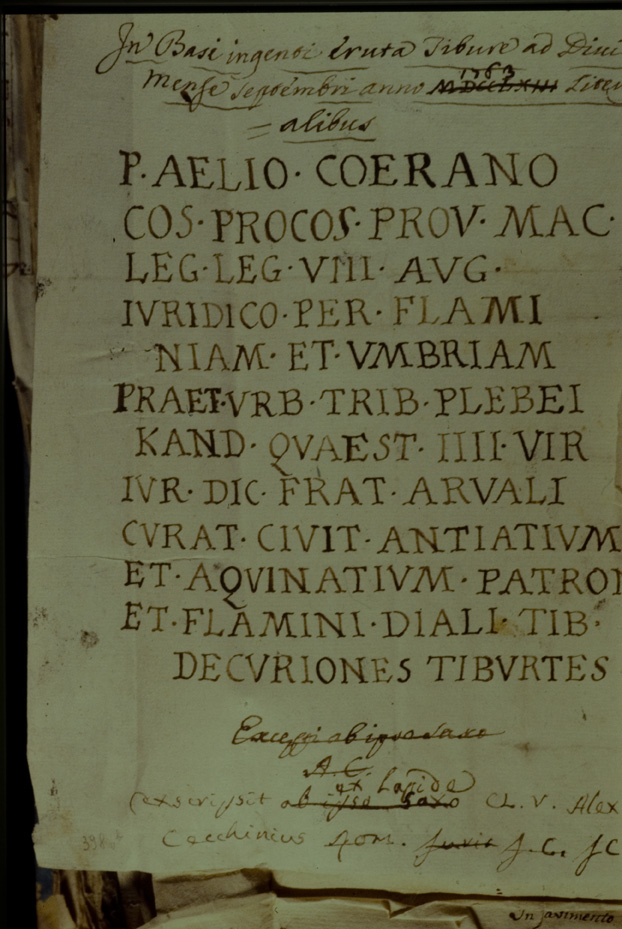 In Basi ingenti eruta Tibure ad Divi
Mense Septembri anno MDCCLXIII 1763 Liter
= alibus
P·AELIO·COERANO
COS·PROCOS·PROV·MAC·
LEG·LEG·VIII·AVG·
IVRIDICO·PER·FLAMI
NIAM·ET·VMBRIAM
PRAET·VRB·TRIB·PLEBEI
KAND·QVAEST·IIII·VIR
IVR·DIC·FRAT·ARVALI
CVRAT·CIVIT·ANTIATIVM
ET·AQVINATIVM·PATRON
ET·FLAMINI·DIALI·TIB·
DECVRIONES TIBVRTES
Excepi ab ipso saxo
A.C.
ex Lapide
exscripsit ab ipso saxo CL. V. Alex
Cecchinius Rom. J.C.
398
In pavimento